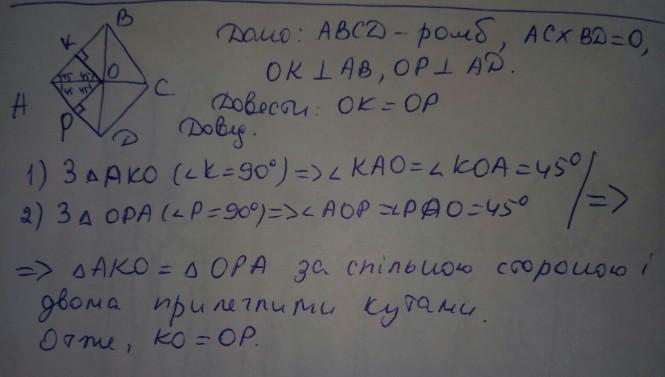 B
Дано: ABCD - ромб, AC x BD = O,
K
OK ⊥ AB, OP ⊥ AD.
O
C
A
Довести: OK = OP
P
D
Довед.
45 45
45 45
1) З △ AKO (∠K=90°) => ∠ KAO = ∠ KOA = 45°
2) З △ OPA (∠P=90°) => ∠ AOP = ∠PAO = 45° =>
=> △ AKO = △ OPA за спільною стороною і
двома прилеглими кутами.
Отже, KO = OP.